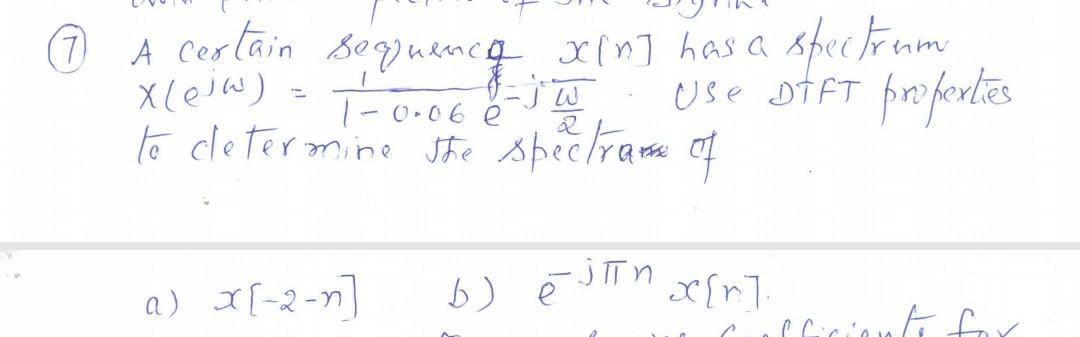 7 A certain sequence x[n] has a spectrum
X(e^jω) = 1 / (1 - 0.06 e^-jω/2) . Use DTFT properties
to determine the spectram of
a) x[-2-n] b) e^-jπn x[n].